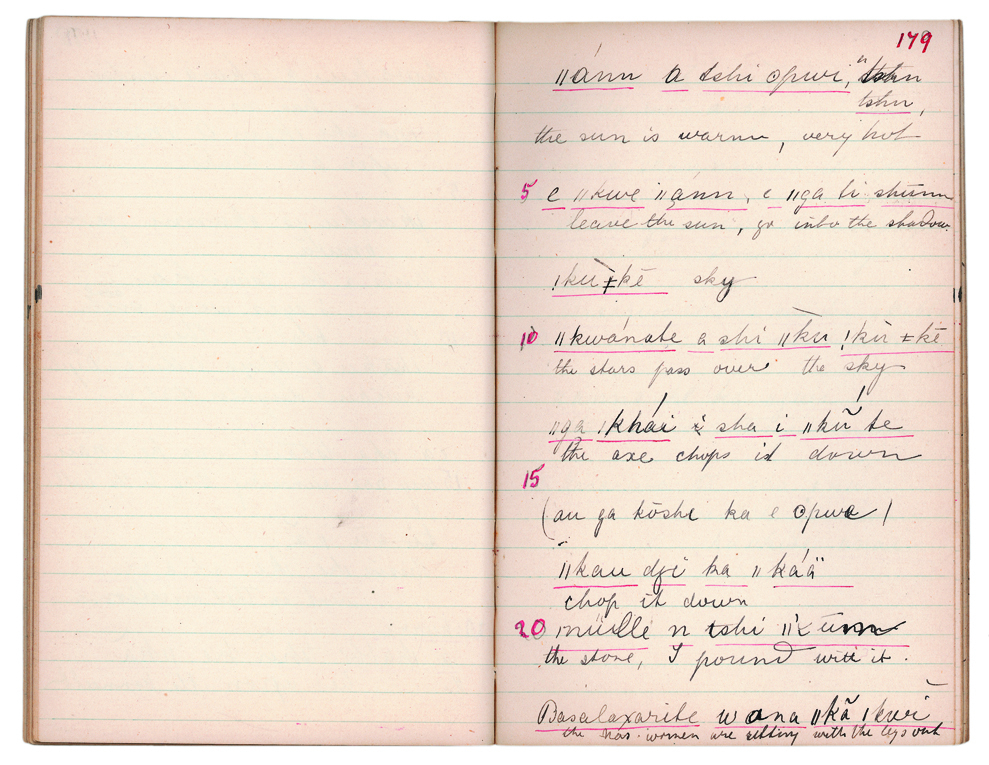 179
ǁánn a tshi ʘpwi, tshn
tshn,
the sun is warm, very hot
5 e ǁkwe ǁánn, e ǁga ti shünn
leave the sun, go into the shadow.
ǃkuǂkē sky
10 ǁkwánate a shí ǁku ǃkù ǂkē
the stars pass over the sky
ǁga ǀkhái sha i ǁkũ te
the axe chops it down
15
(au ga kōshe ka e ʘpwe)
ǁkau dzi ka ǁkáä
chop it down
20 n tshi
the stone, I pound with it.
Basalaxarite wana ǁkă ǀkwi
the Nas. women are sitting with the legs out